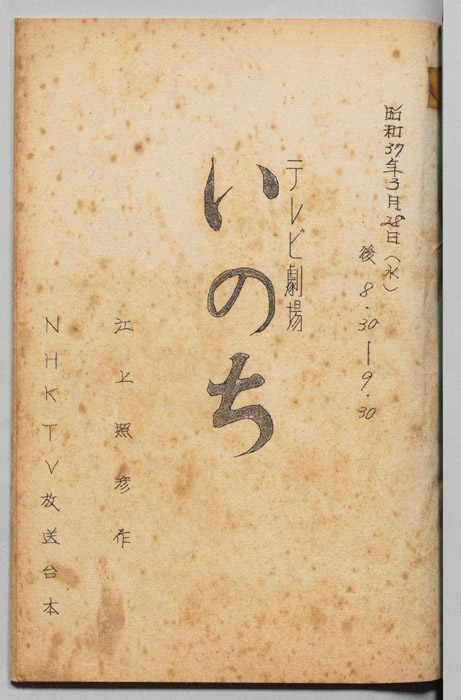 昭和37年3月28日(水)
後8.30―9.30
テレビ劇場
いのち
江上照彦作
NHKTV放送台本